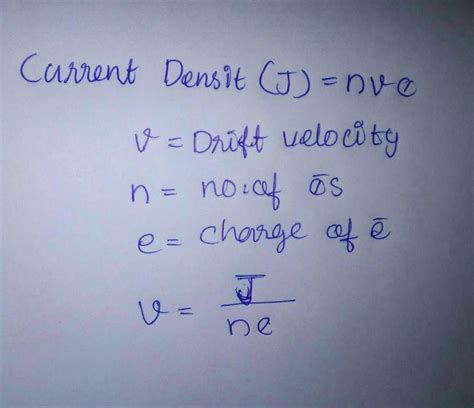 Current Densit (J) = nve
v = Drift velocity
n = no. of ēs
e = charge of ē
v = J / ne